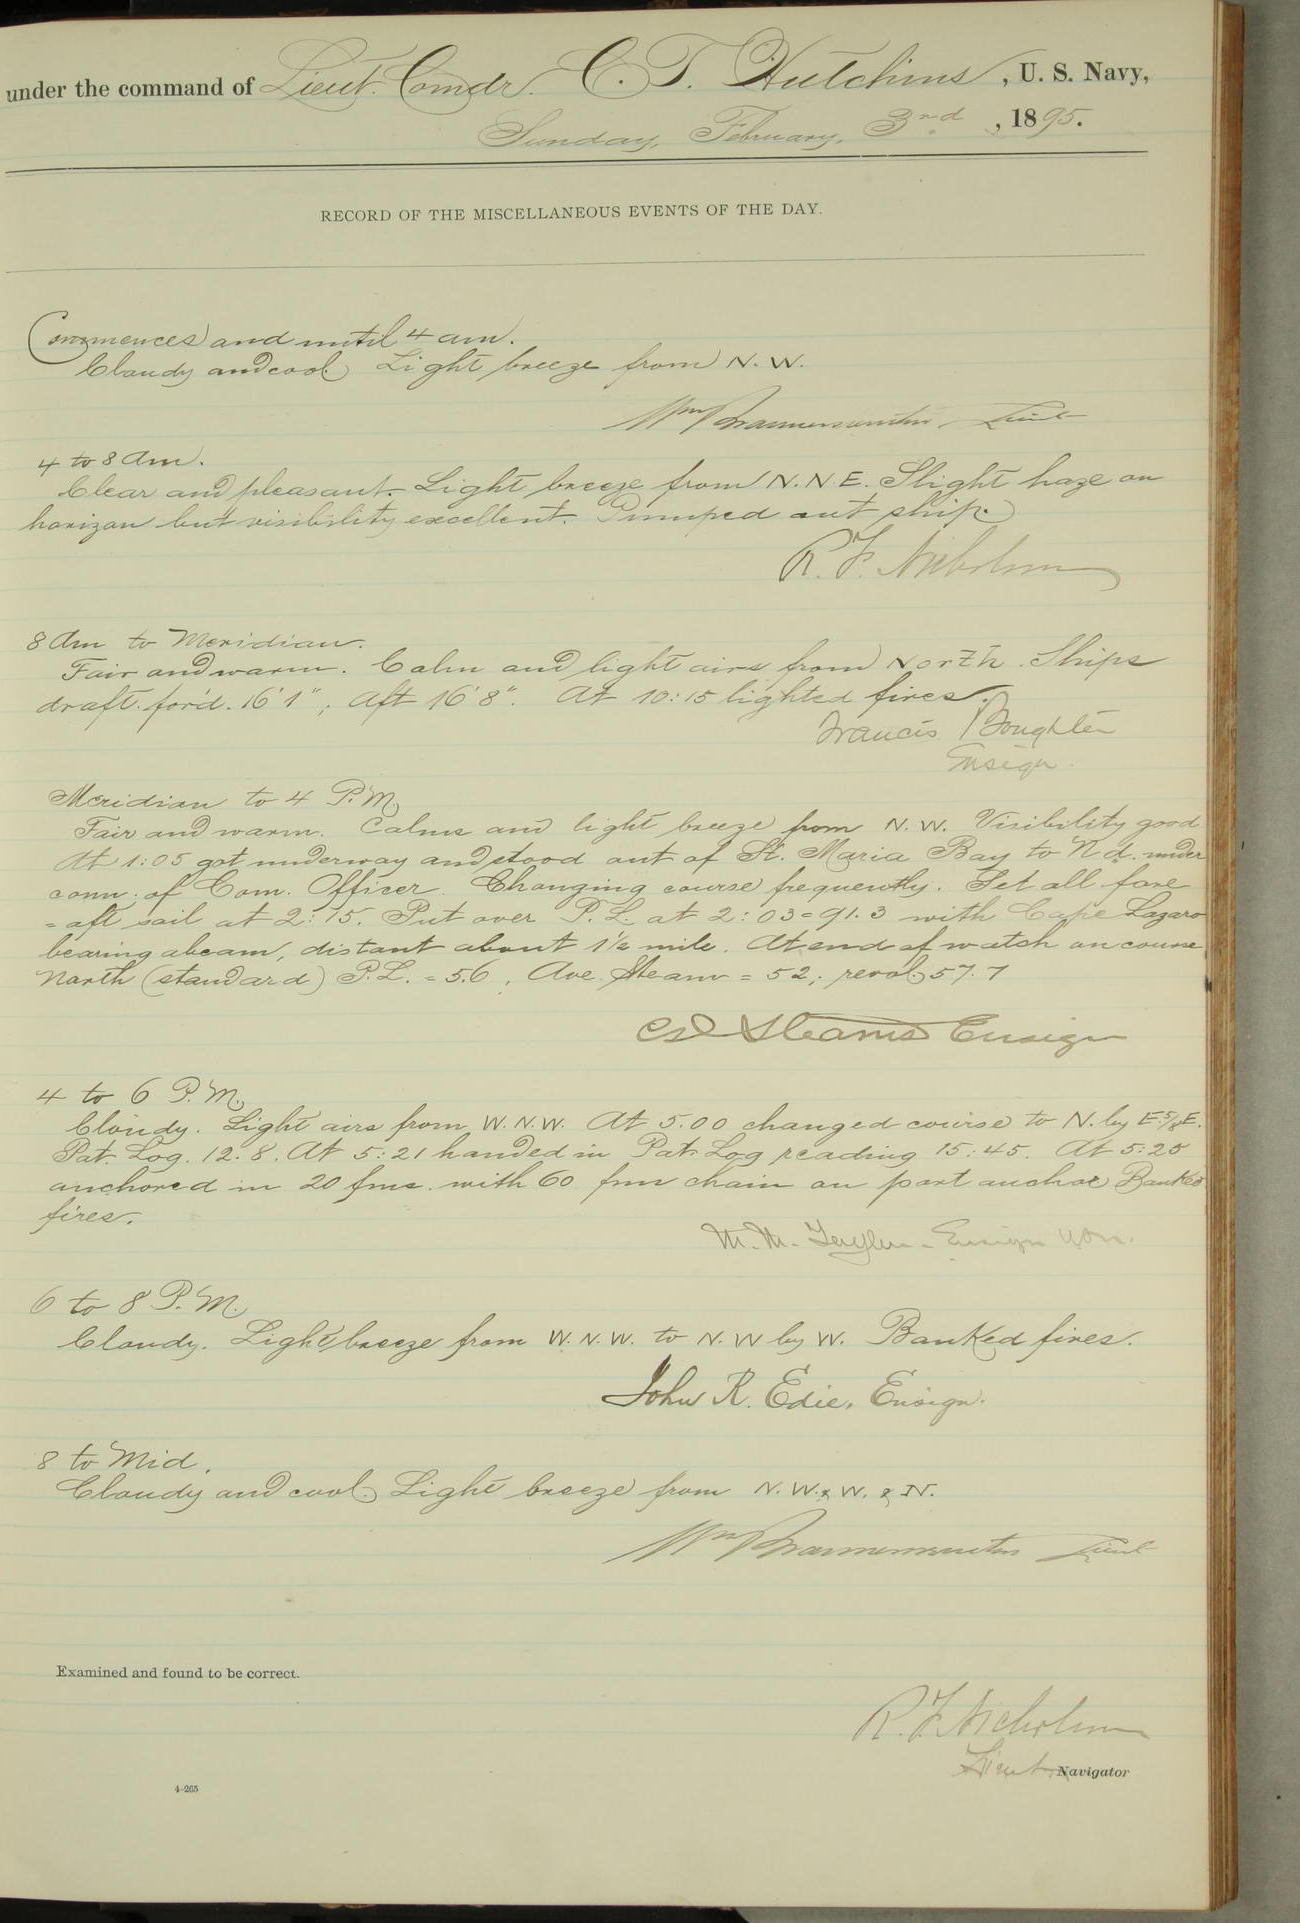 under the command of Lieut. Comdr. C. T. Hutchins, U. S. Navy,
Sunday, February, 3rd, 1895.
RECORD OF THE MISCELLANEOUS EVENTS OF THE DAY.
Commences and until 4 am.
Cloudy and cool. Light breeze from N. W.
Wm Braunersreuther Lieut
4 to 8 Am.
Clear and pleasant. Light breeze from N. N. E. Slight haze on
horizon but visibility excellent. Pumped out ship.
R. F. Nicholson
8 Am to Meridian.
Fair and warm. Calm and light airs from North. Ships
draft. for'd. 16' 1", Aft 16' 8". At 10:15 lighted fires.
Francis Boughter
Ensign.
Meridian to 4 P.M.
Fair and warm. Calms and light breeze from N. W. Visibility good
At 1:05 got underway and stood out of St. Maria Bay to N'd. under
conn. of Com. Officer. Changing course frequently. Set all fore
=aft sail at 2:15. Put over P. L. at 2:03=91.3 with Cape Lazaro
bearing abeam, distant about 1½ mile. At end of watch on course
North (standard) P.L. = 5.6, Ave. Steam = 52; revol. 57.7
C D Stearns Ensign
4 to 6 P.M.
Cloudy. Light airs from W. N. W. At 5.00 changed course to N. by E 5/8 E.
Pat. Log. 12.8. At 5:21 handed in Pat. Log reading 15:45. At 5:25
anchored in 20 fms. with 60 fm chain on port anchor Banked
fires.
M. M. Taylor - Ensign USN.
6 to 8 P.M.
Cloudy. Light breeze from W. N. W. to N. W by W. Banked fires.
John R. Edie, Ensign.
8 to Mid.
Cloudy and cool. Light breeze from N. W. & W. & N.
Wm Braunersreuther Lieut
Examined and found to be correct.
R. F. Nicholson
Lieut. Navigator
4-265